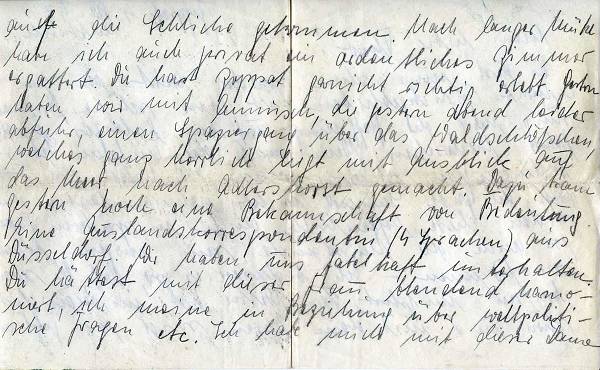 auf die Schliche gekommen. Nach langer Mühe
habe ich auch privat ein ordentliches Zimmer
ergattert. Du hast Zoppot garnicht richtig erlebt. Gestern
haben wir mit die gestern abend leider
abfuhr, einen Spaziergang über das Waldschlößchen,
welches ganz herrlich liegt mit Ausblick auf
das Meer nach Adlershorst gemacht. Dazu kam
gestern noch eine Bekanntschaft von Bedeutung.
Eine Auslandskorrespondentin (4 Sprachen) aus
Düsseldorf. Wir haben uns fabelhaft unterhalten.
Du hättest mit dieser Frau blendend harmo-
niert, ich meine in Beziehung über weltpoliti-
sche Fragen etc. Ich habe mich mit dieser Dame